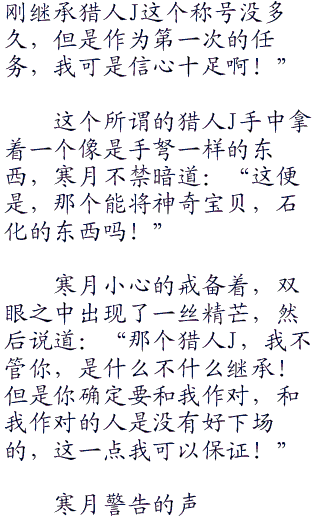 刚继承猎人J这个称号没多
久，但是作为第一次的任
务，我可是信心十足啊！”
这个所谓的猎人J手中拿
着一个像是手弩一样的东
西，寒月不禁暗道：“这便
是，那个能将神奇宝贝，石
化的东西吗！”
寒月小心的戒备着，双
眼之中出现了一丝精芒，然
后说道：“那个猎人J，我不
管你，是什么不什么继承！
但是你确定要和我作对，和
我作对的人是没有好下场
的，这一点我可以保证！”
寒月警告的声